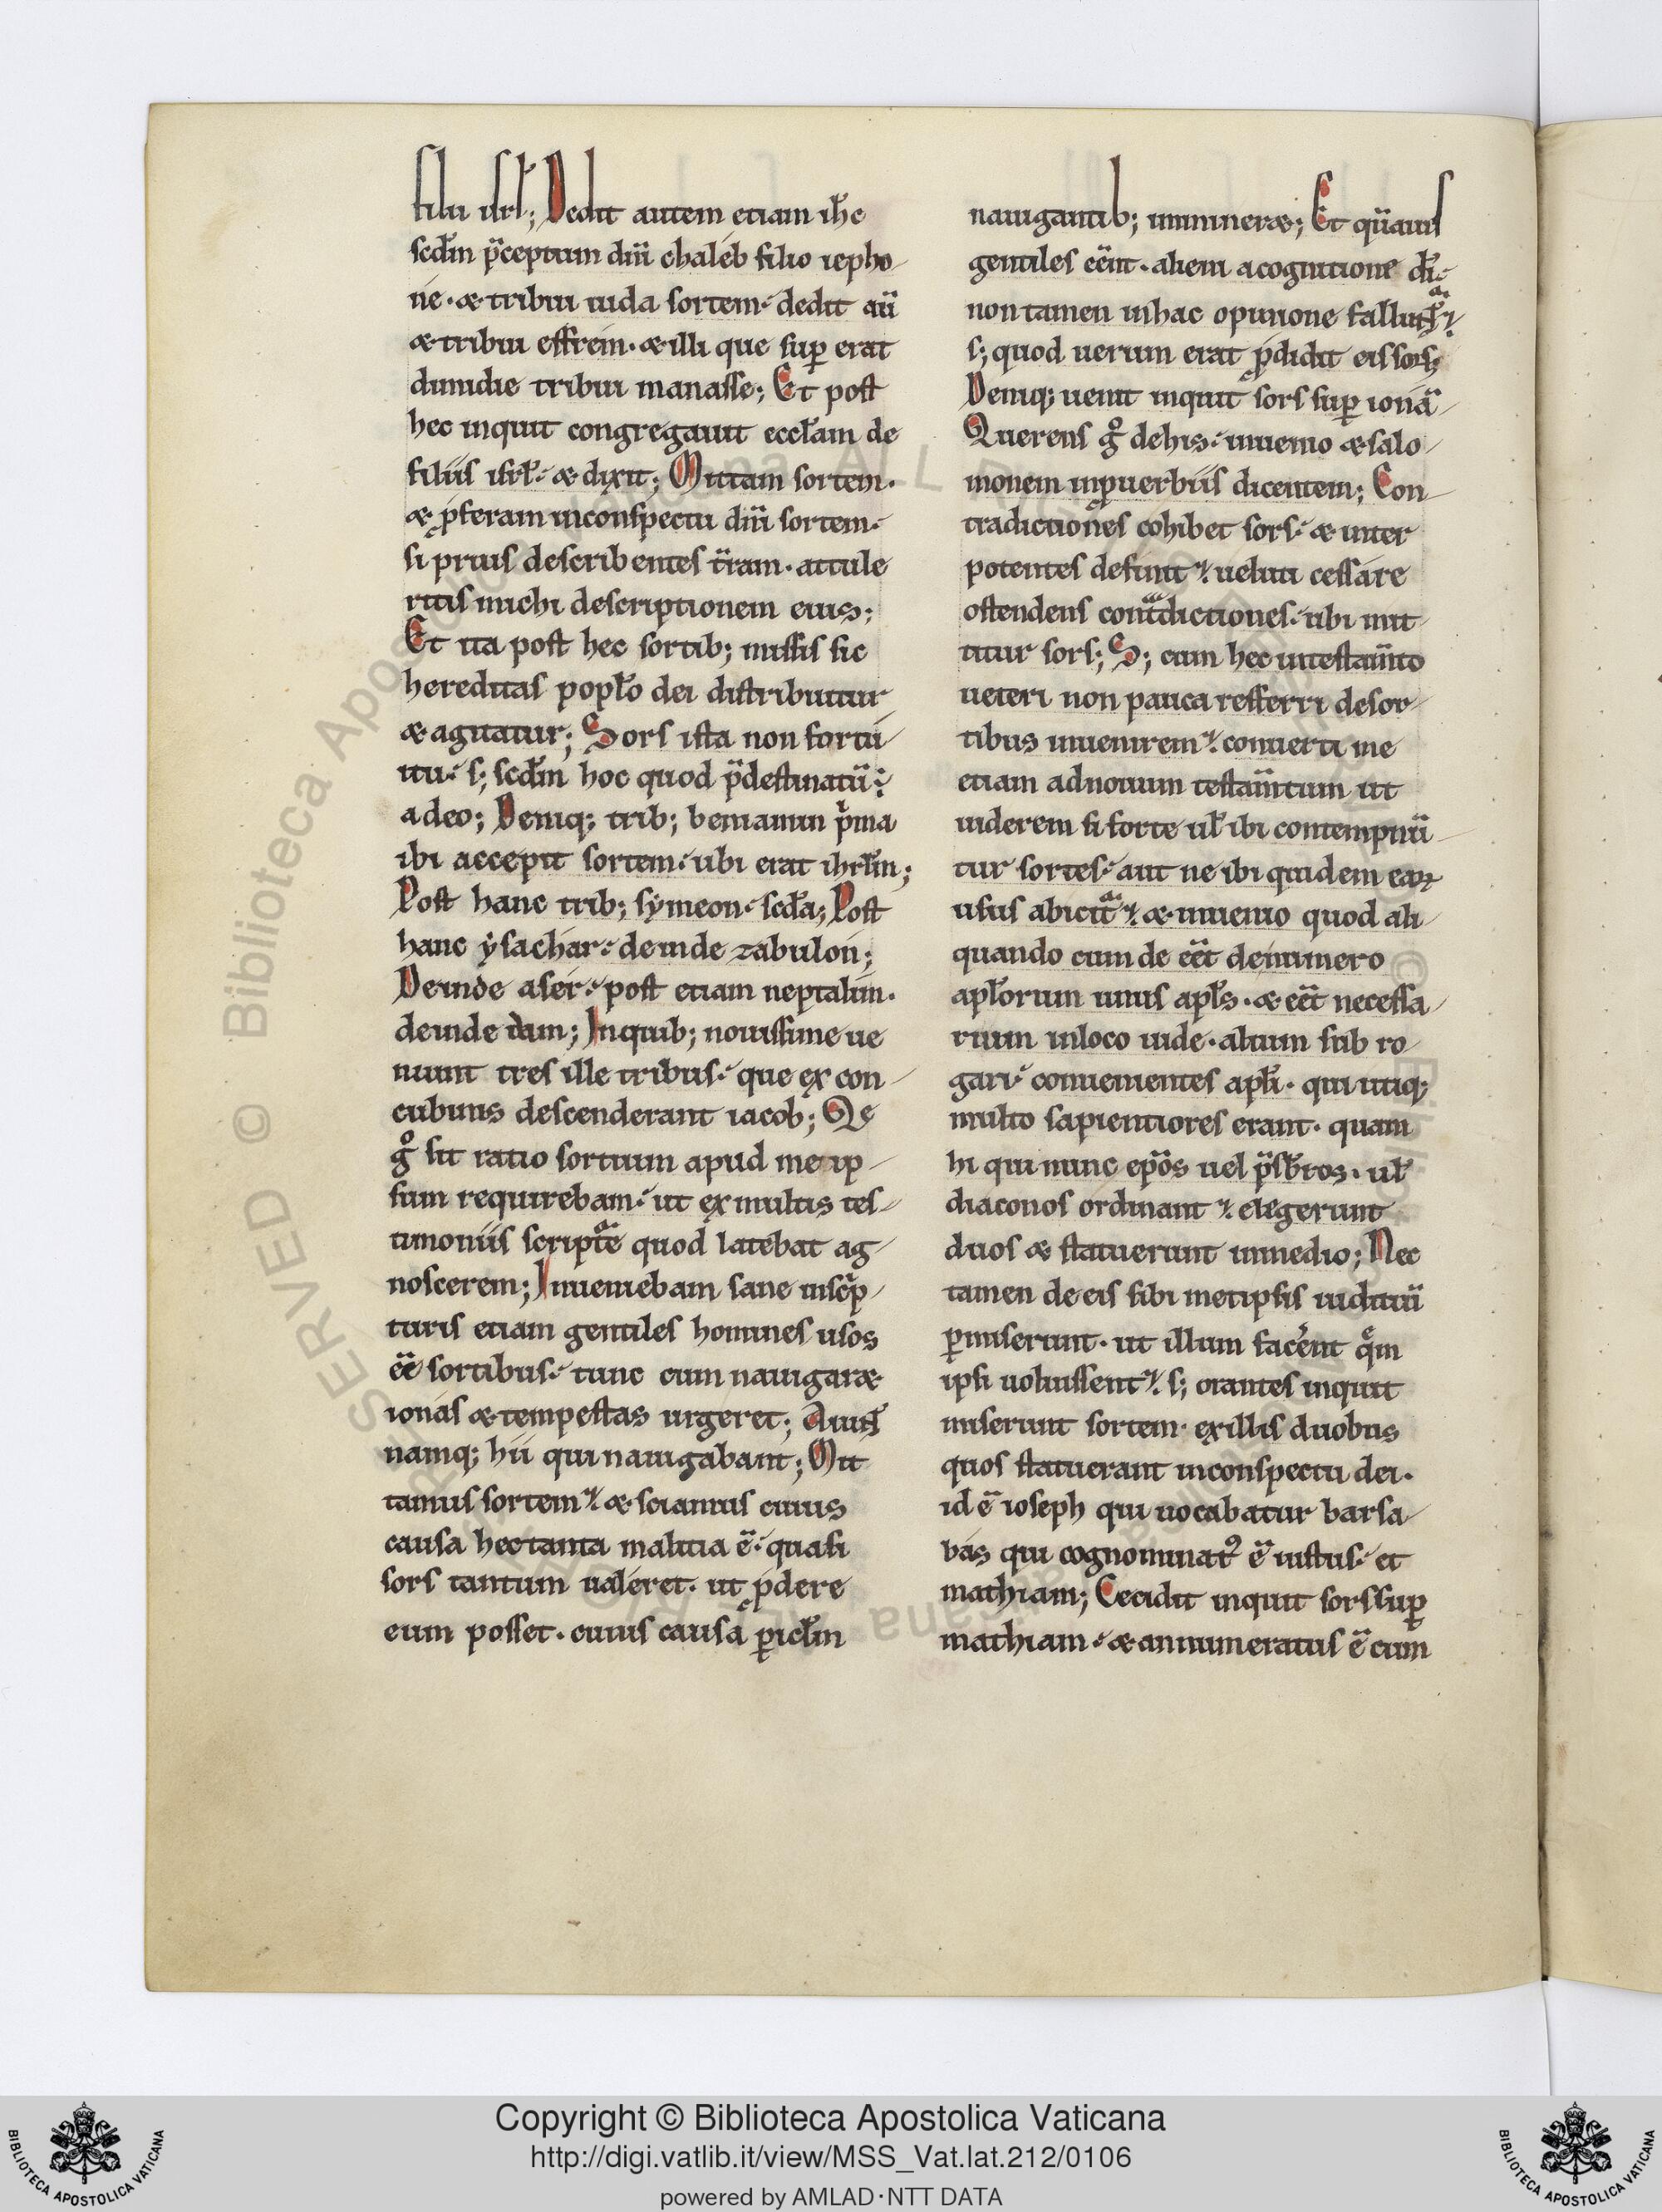 filii isrl̄; Dedit autem etiam ih̄c
scd̄m p̄ceptum dn̄i chaléb filio iepho
ne · & tribui iuda sortem · dedit aū
& tribui effrem · & illi que sup̄ erat
dimidie tribui manasse; Et post
hec inquit congregauit eccl̄am de
filiis isrl̄ · & dixit; Mittam sortem ·
& ꝓferam inconspectu dn̄i sortem ·
si prius describentes t̄ram · attule
ritis michi descriptionem eius;
Et ita post hec sortib; missis sic
hereditas popl̄o dei distribuitur
& agitatur; Sors ista non fortu
itu · s; scd̄m hoc quod p̄destinatū ÷
a deo; Deniq; trib; beniamin p̄ma
ibi accepit sortem · ubi erat ihrl̄m;
Post hanc trib; sẏmeon · scd̄a; Post
hanc ẏsachár · deinde zabulón;
Deinde asér · post etiam neptalim ·
deinde dam; Inquib; nouissime ue
niunt tres ille tribus · que ex con
cubinis descenderant iacob; Qe
gͦ sit ratio sortium apud me ip
sum requirebam · ut ex multis tes
timoniis scriptᵃe quod latebat ag
noscerem; Inueniebam sane inscp̄
turis etiam gentiles homines usos
eē sortibus · tunc cum nauigar&
ionás & tempestas urgeret; Aiunt
namq; hii qui nauigabant; Mit
tamus sortem & sciamus cuius
causa hec tanta malitia ē · quasi
sors tantum ualeret · ut ꝓdere
eum posset · cuius causa ꝑicl̄m
nauigantib; immineret; Et quāuis
gentiles eēnt · alieni acognitione dī ·
non tamen inhac opinione fallunt᷑
s; quod uerum erat ꝓdidit eis sors;
Deniq; uenit inquit sors sup̄ ionā
Querens gͦ dehis · inuenio & salo
monem inꝓuerbiis dicentem; Con
tradictiones cohibet sors · & inter
potentes definit · ueluti cessare
ostendens contᵃdictiones · ubi mit
titur sors; S; cum hec intestam̄to
ueteri non pauca refferri desor
tibus inuenirem · conuerti me
etiam adnouum testam̄tum ut
uiderem si forte ul̄ ibi contempnū
tur sortes · aut ne ibi quidem eaꝝ
usus abicit᷑ · & inuenio quod ali
quando cum de eēt denumero
apl̄orum unus apl̄s · & eēt necessa
rium inloco iude · alium sub ro
gari · conuenientes apl̄i · qui utiq;
multo sapientiores erant · quam
hi qui nunc ep̄os uel p̄sb̄ros · ul̄
diaconos ordinant · elegerunt
duos & statuerunt inmedio; Nec
tamen de eis sibi metipsis iuditiū
ꝑmiserunt · ut illum facen̄t quem
ipsi uoluissent · s; orantes inquit
miserunt sortem · exillis duobus
quos statuerant inconspectu dei ·
id ē ioseph qui uocabatur barsa
bás qui cognominatꝰ ē iustus · et
mathiam; Cecidit inquit sors sup̄
mathiam · & annumeratus ē cum
Copyright © Biblioteca Apostolica Vaticana
http://digi.vatlib.it/view/MSS_Vat.lat.212/0106
powered by AMLAD·NTT DATA
BIBLIOTECA APOSTOLICA VATICANA
BIBLIOTECA APOSTOLICA VATICANA